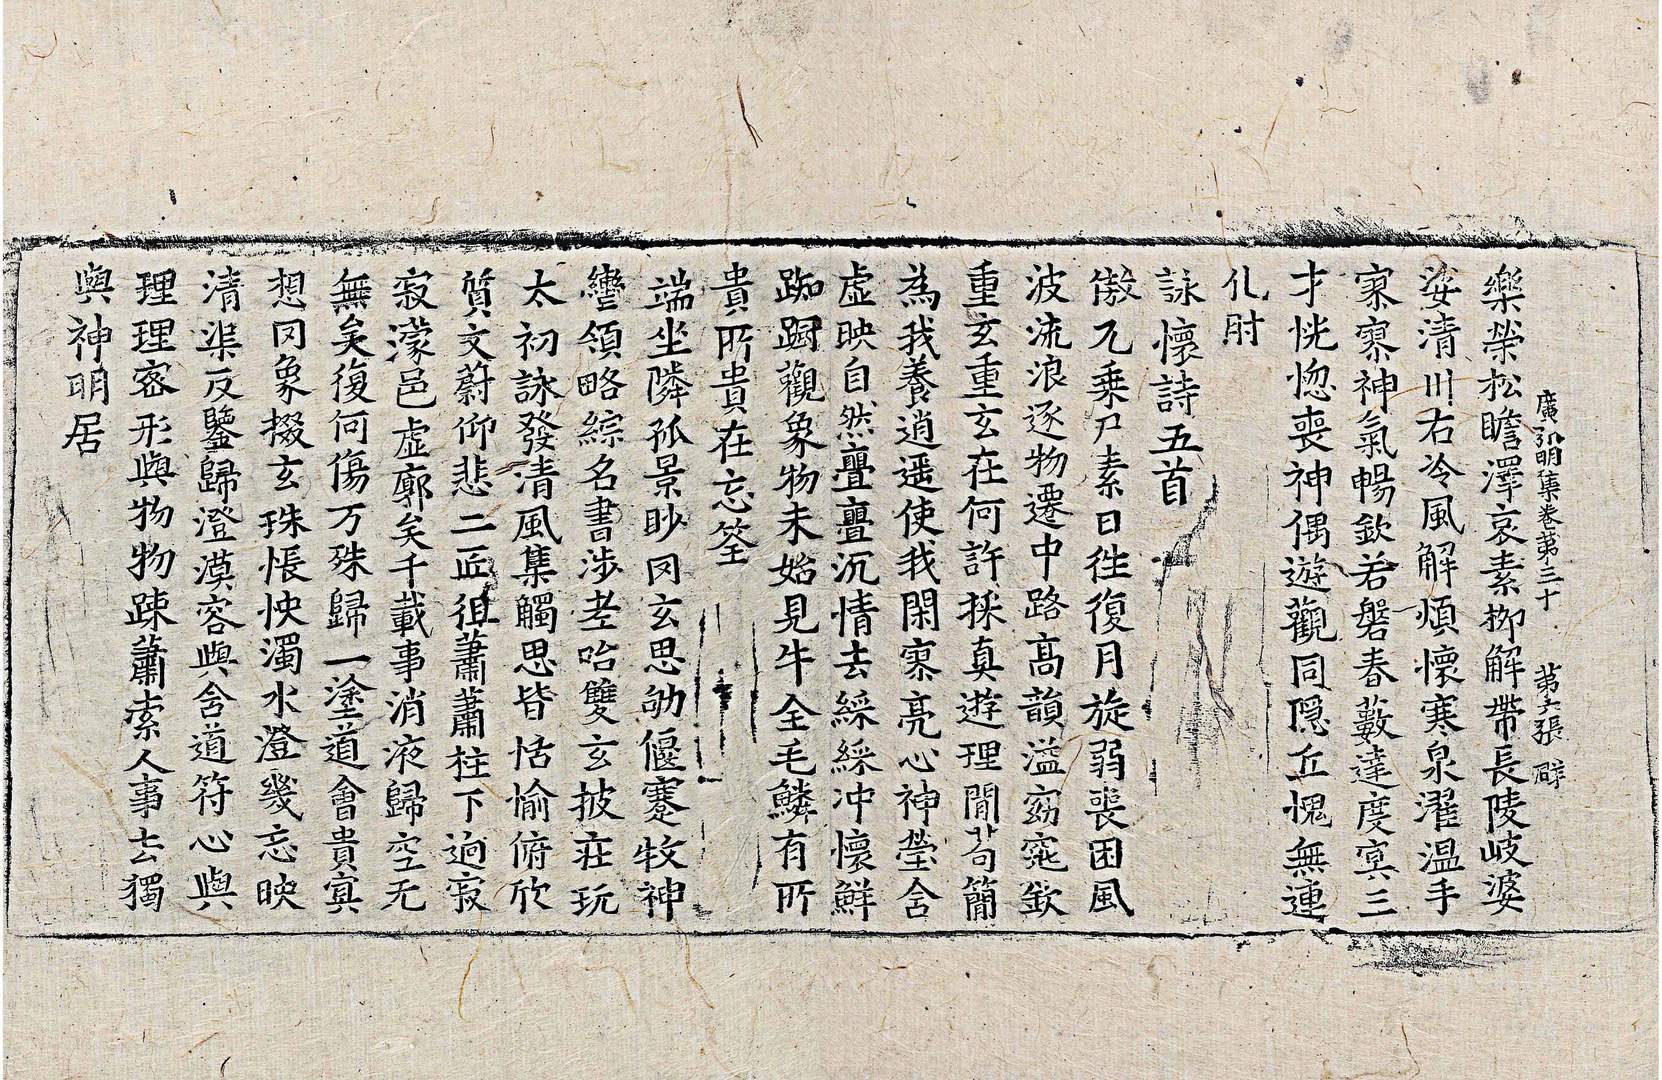 廣弘明集卷苐三十 苐張 群
樂榮松瞻澤哀素柳解帶長陵岐婆
娑清川右冷風解煩懷寒泉濯温手
寥寥神氣暢欽若磐春藪達度冥三
才恍惚喪神偶遊觀同隱丘愧無連
化肘
詠懷詩五首
傲兀乗尸素日徃復月旋弱喪困風
波流浪逐物遷中路高韻溢窈窕欽
重玄重玄在何許採真遊理間苟簡
為我養逍遥使我閑寥亮心神瑩含
虛映自然亹亹沉情去綵綵冲懷鮮
踟蹰觀象物未始見牛全毛鱗有所
貴所貴在忘筌
端坐隣孤景眇罔玄思劬偃蹇牧神
轡領略綜名書涉老咍雙玄披莊玩
太初詠發清風集觸思皆恬愉俯欣
質文蔚仰悲二匠徂蕭蕭柱下迥寂
寂濛邑虛廓矣千載事消液歸空无
無矣復何傷万殊歸一塗道會貴冥
想罔象掇玄珠悵怏濁水澄幾忘映
清渠反鑒歸澄漠容與含道符心與
理理密形與物物踈蕭索人事去獨
與神明居